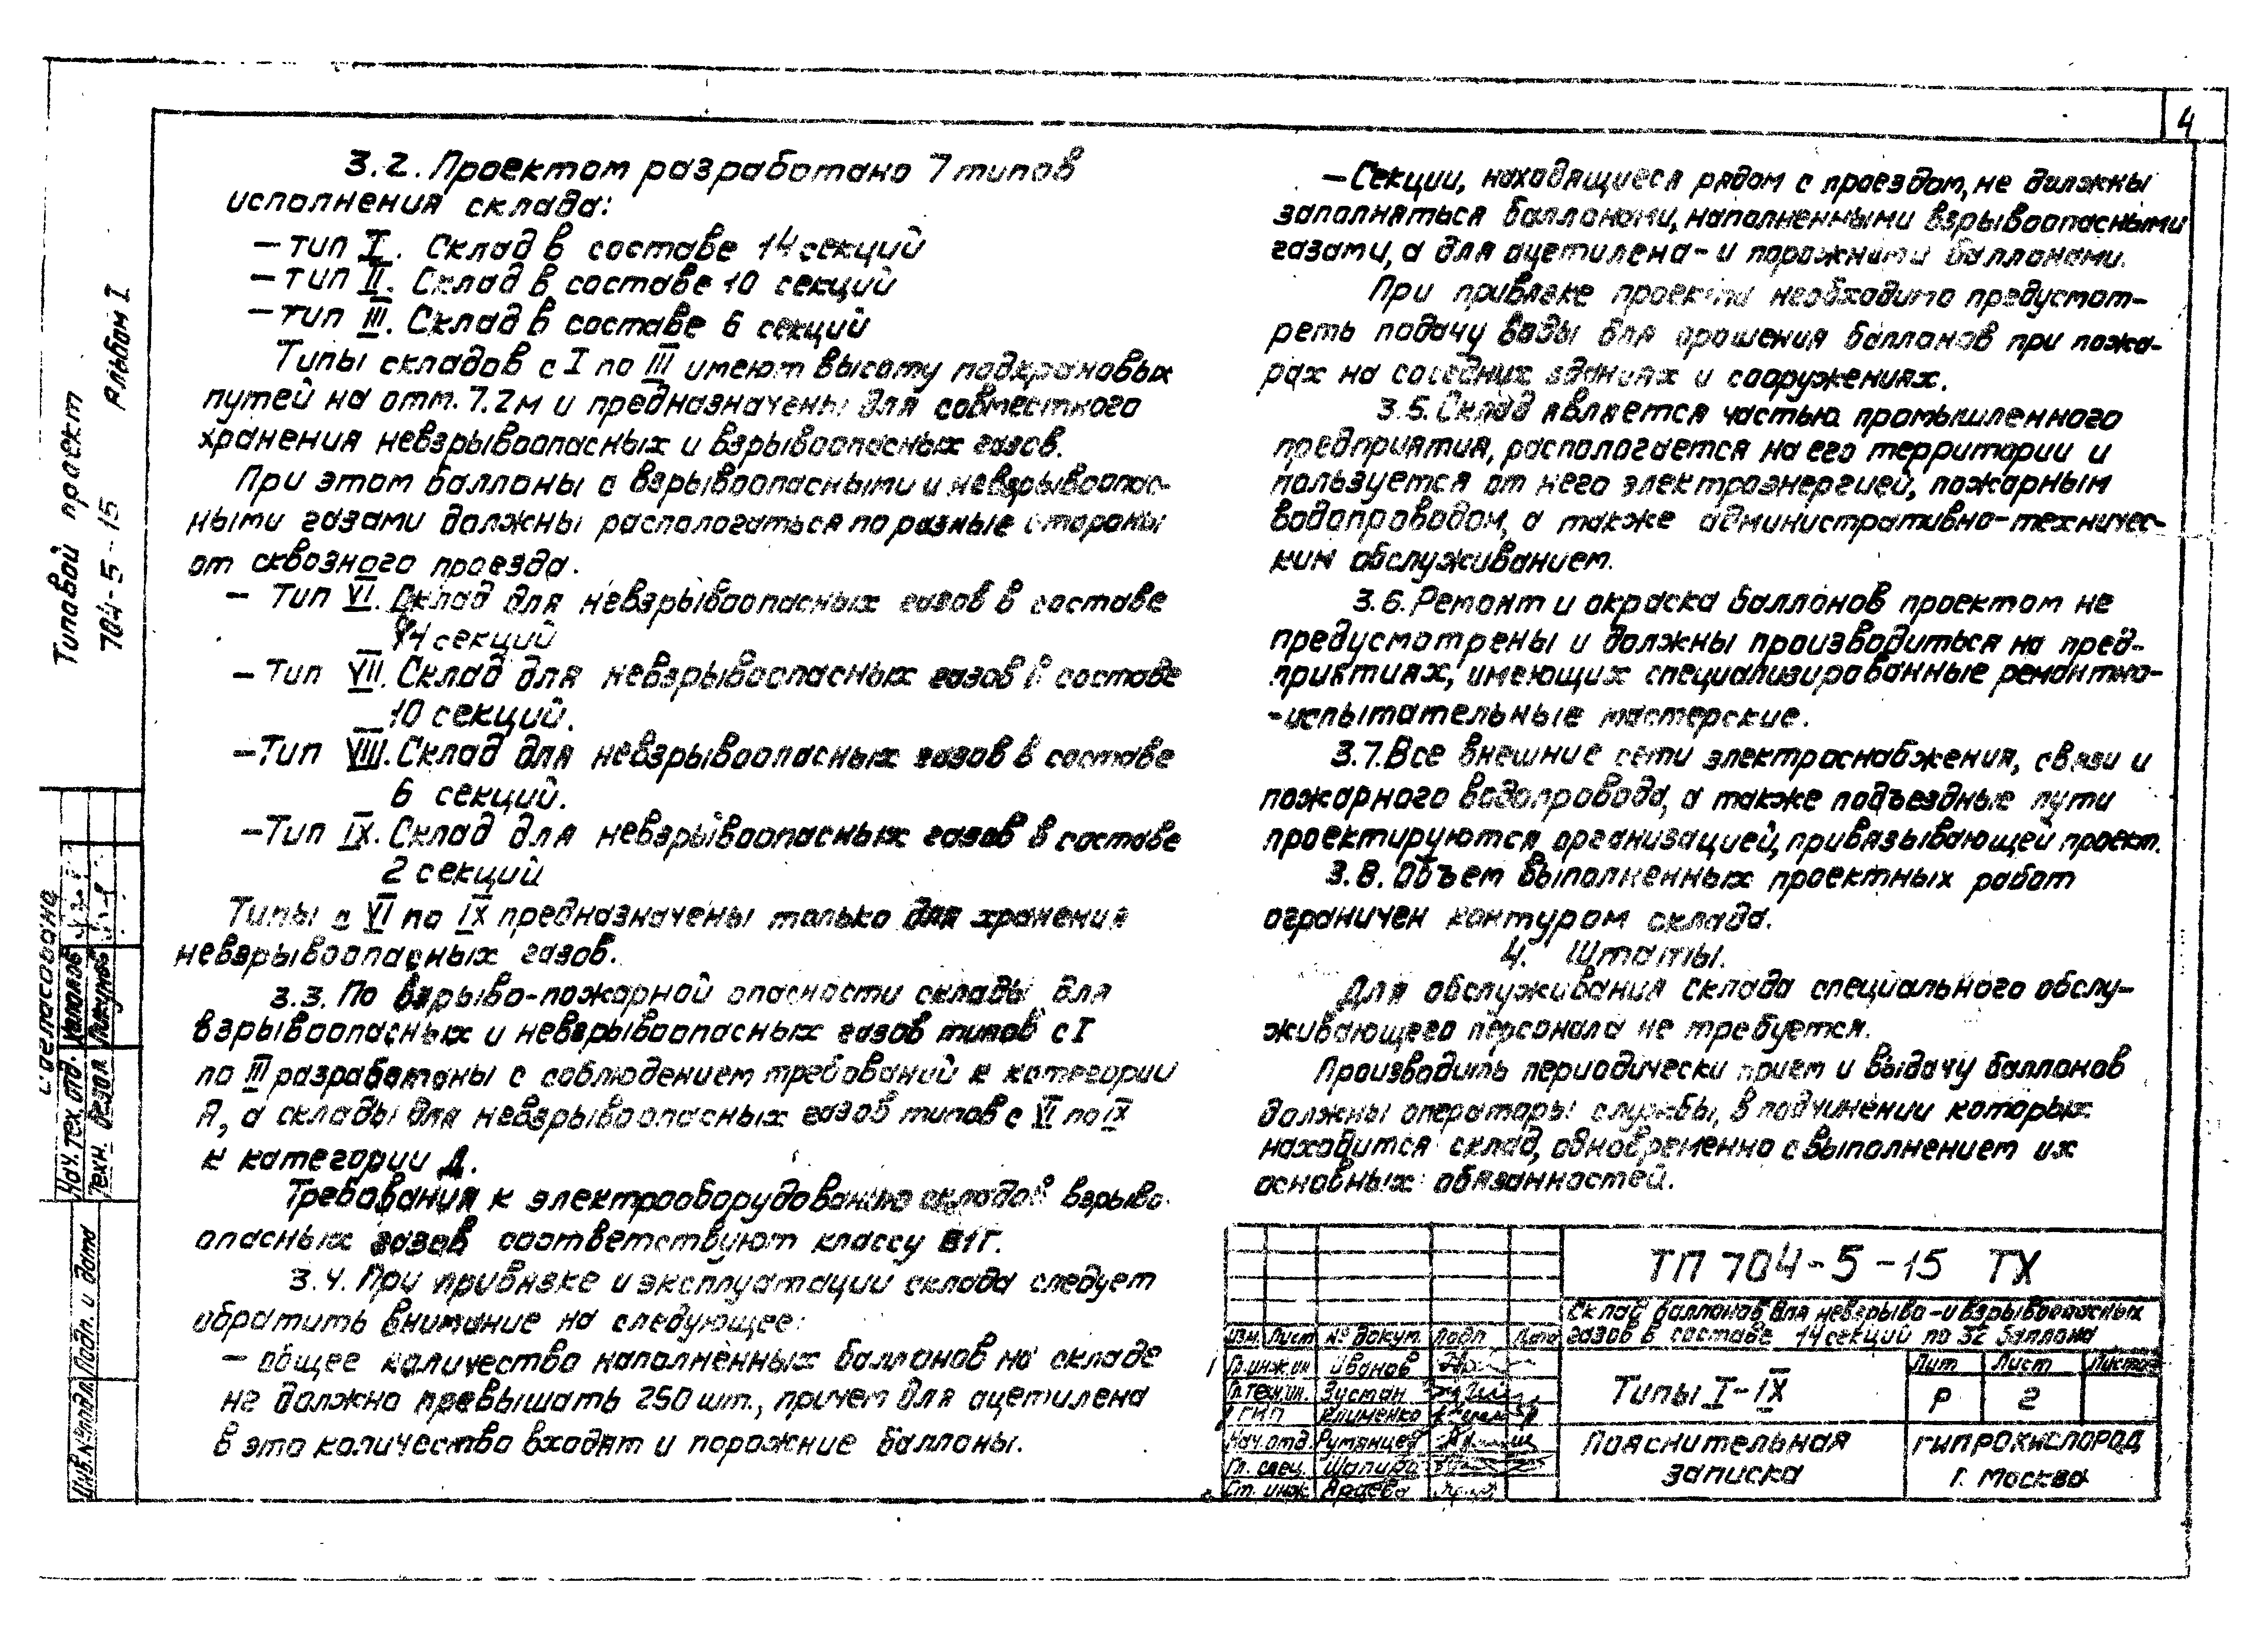 4
3.2. Проектом разработано 7 типов
исполнения склада:
– тип I. Склад в составе 14 секций
– тип II. Склад в составе 10 секций
– тип III. Склад в составе 6 секций
Типы складов с I по III имеют высоту подкрановых
путей на отм. 7.2м и предназначены для совместного
хранения невзрывоопасных и взрывоопасных газов.
При этом баллоны с взрывоопасными и невзрывоопас-
ными газами должны располагаться по разные стороны
от сквозного проезда.
– Тип VI. Склад для невзрывоопасных газов в составе
14 секций
– Тип VII. Склад для невзрывоопасных газов в составе
10 секций.
– Тип VIII. Склад для невзрывоопасных газов в составе
6 секций.
– Тип IX. Склад для невзрывоопасных газов в составе
2 секций
Типы с VI по IX предназначены только для хранения
невзрывоопасных газов.
3.3. По взрыво-пожарной опасности склады для
взрывоопасных и невзрывоопасных газов типов с I
по III разработаны с соблюдением требований к категории
А, а склады для невзрывоопасных газов типов с VI по IX
к категории Д.
Требования к электрооборудованию складов взрыво-
опасных газов соответствуют классу В1Г.
3.4. При привязке и эксплуатации склада следует
обратить внимание на следующее:
– общее количество наполненных баллонов на складе
не должно превышать 250 шт., причем для ацетилена
в это количество входят и порожние баллоны.
– Секции, находящиеся рядом с проездом, не должны
заполняться баллонами, наполненными взрывоопасными
газами, а для ацетилена – и порожними баллонами.
При привязке проекта необходимо предусмот-
реть подачу воды для орошения баллонов при пожа-
рах на соседних зданиях и сооружениях.
3.5. Склад является частью промышленного
предприятия, распологается на его территории и
пользуется от него электроэнергией, пожарным
водопроводом, а также административно-техничес-
ким обслуживанием.
3.6. Ремонт и окраска баллонов проектом не
предусмотрены и должны производиться на пред-
приятиях, имеющих специализированные ремонтно-
-испытательные мастерские.
3.7. Все внешние сети электроснабжения, связи и
пожарного водопровода, а также подъездные пути
проектируются организацией, привязывающей проект.
3.8. Объем выполненных проектных работ
ограничен контуром склада.
4. Штаты.
Для обслуживания склада специального обслу-
живающего персонала не требуется.
Производить периодически прием и выдачу баллонов
должны операторы службы, в подчинении которых
находится склад, одновременно с выполнением их
основных обязанностей.
Типовой проект
704-5-15 Альбом I
Согласовано
Нач. тех. отд.
Техн.
Инв.№подл. Подп. и дата
ТП 704-5-15 ТХ
Склад баллонов для невзрыво-и взрывоопасных
газов в составе 14 секций по 32 баллона
Изм. Лист № докум. Подп Дата
Гл.инж.ин Иванов
Гл.техн.ин. Зустан
ГИП Клименко
Нач.отд. Румянцев
Гл. спец. Шапиро
Ст. инж. Араева
Типы I-IX
Лит Лист Листов
Р 2
Пояснительная
записка
ГИПРОКИСЛОРОД
г. Москва